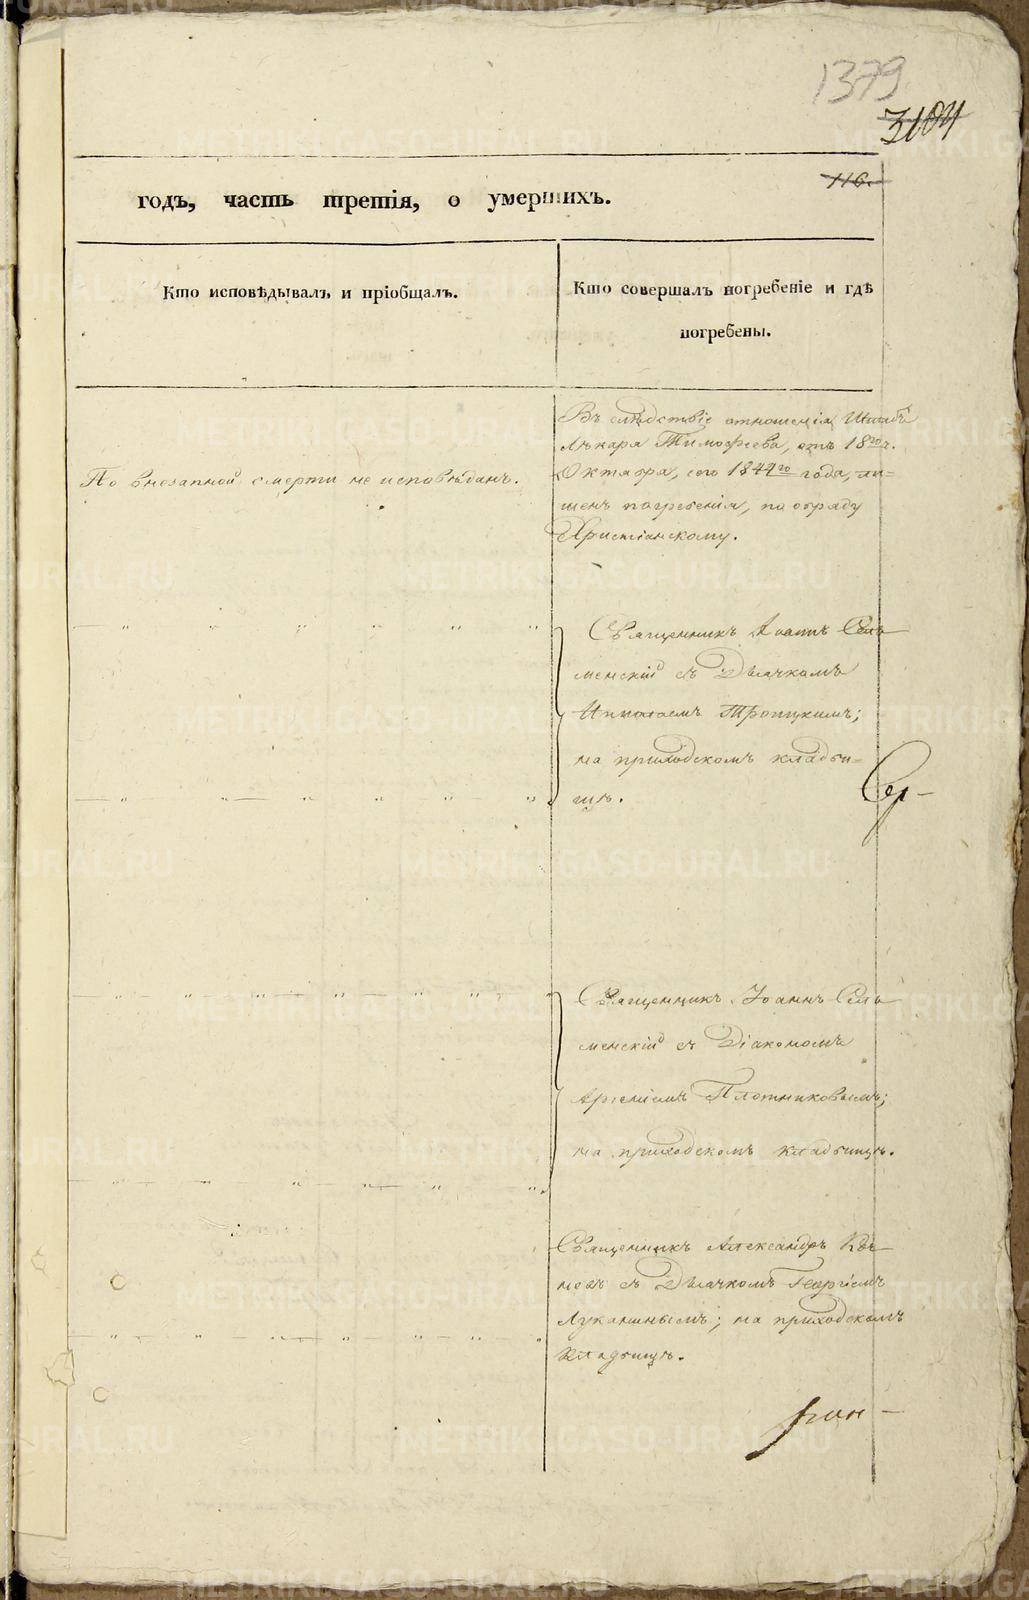 1379
3104
116.
годъ, часть третія, о умершихъ.
Кто исповѣдывалъ и пріобщалъ.
Кто совершалъ погребеніе и гдѣ
погребены.
Въ слѣдствіе отношенія Штабъ
Лѣкаря Тимофеева, отъ 18го ч.
Октября, сего 1844го года, ли=
шенъ погребенія, по обряду
Христіанскому.
По внезапной смерти не исповѣданъ.
Священникъ Іоаннъ Селъ
менскій съ Дьячкомъ
Николаемъ Троицкимъ;
на приходскомъ кладби=
щѣ.
Священникъ Іоаннъ Сель
менскій съ Діакономъ
Арсеніемъ Плотниковымъ;
на приходскомъ кладбищѣ.
Священникъ Александръ
съ Дьячкомъ Георгіемъ
Луканинымъ; на приходскомъ
кладбищѣ.